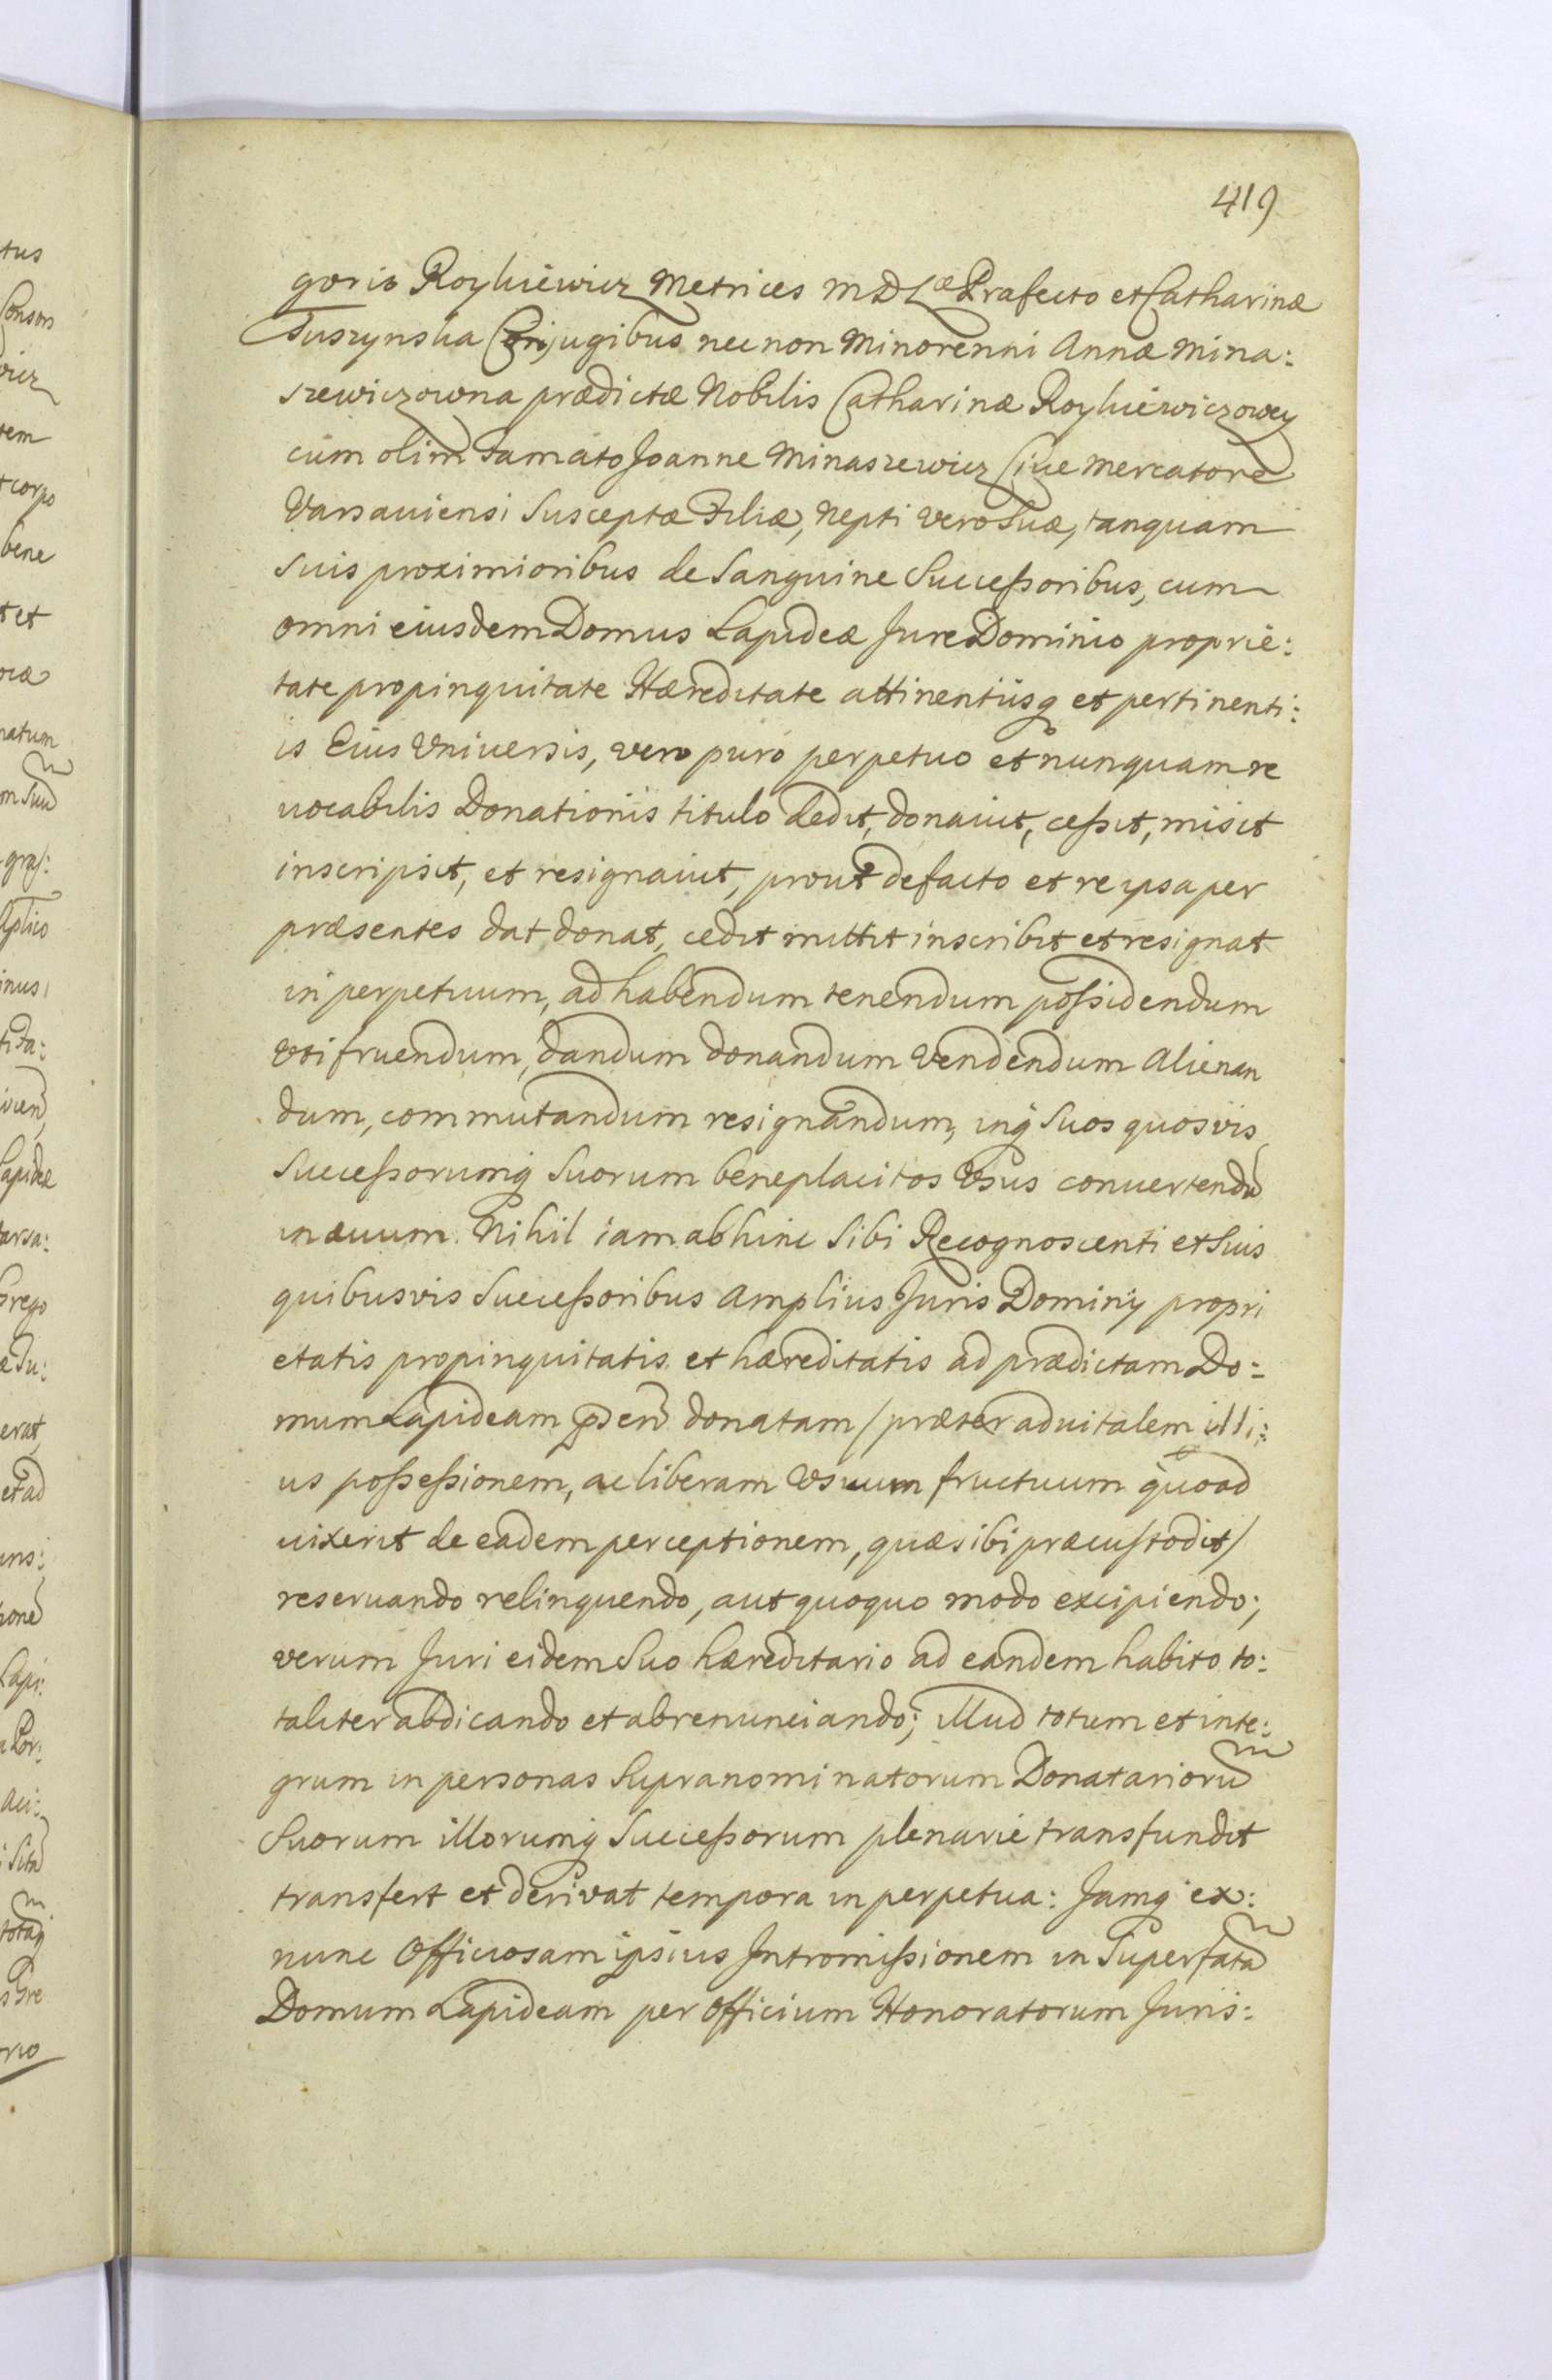 419
goris Royhiewicz Metrices M D Læ Præfecto et Catharinæ
Tuszynska Conjugibus necnon Minorenni Annæ Mina:
szewiczowna prædictæ Nobilis Catharinæ Royhiewiczowey
cum olim Famato Joanne Minaszewicz Ciue Mercatore
Varsauiensi Susceptæ Filiæ, Nepti vero Suæ, tanquam
suis proximioribus de Sanguine Successoribus, cum
omni eiusdem Domus Lapideæ Jure Dominio proprie:
tate propinquitate Hæreditate attinentiisq et pertinenti:
is Eius Vniuersis, vero puro perpetuo et nunquam re
uocabilis Donationis titulo dedit, donauit, cessit, misit
inscripsit, et resignauit, prout de facto et re ipsa per
præsentes dat donat, cedit mittit inscribit et resignat
in perpetuum, ad habendum tenendum possidendum
vti fruendum, dandum donandum vendendum alienan
dum, commutandum resignandum, inq suos quosvis
Successorumq suorum beneplacitos vsus conuertendū
in æuum. Nihil iam abhinc sibi Recognoscenti et suis
quibusvis Successoribus amplius Juris Dominij propri
etatis propinquitatis et hæreditatis ad prædictam Do:
mum Lapideam p̄sen̄ donatam / præter aduitalem illi:
us possessionem, ac liberam vsuum fructuum quoad
uixerit de eadem perceptionem, quæ sibi præcustodit /
reseruando relinquendo, aut quoquo modo excipiendo;
verum Juri eidem suo hæreditario ad eandem habito to:
taliter abdicando et abrenunciando; illud totum et inte:
grum in personas supranominatorum Donatarioru̅
Suorum illorumq Successorum plenarie transfundit
transfert et derivat tempora in perpetua: Jamq ex:
nunc Officiosam ipsius Intromissionem in Superfata̅
Domum Lapideam per Officium Honoratorum Juris: